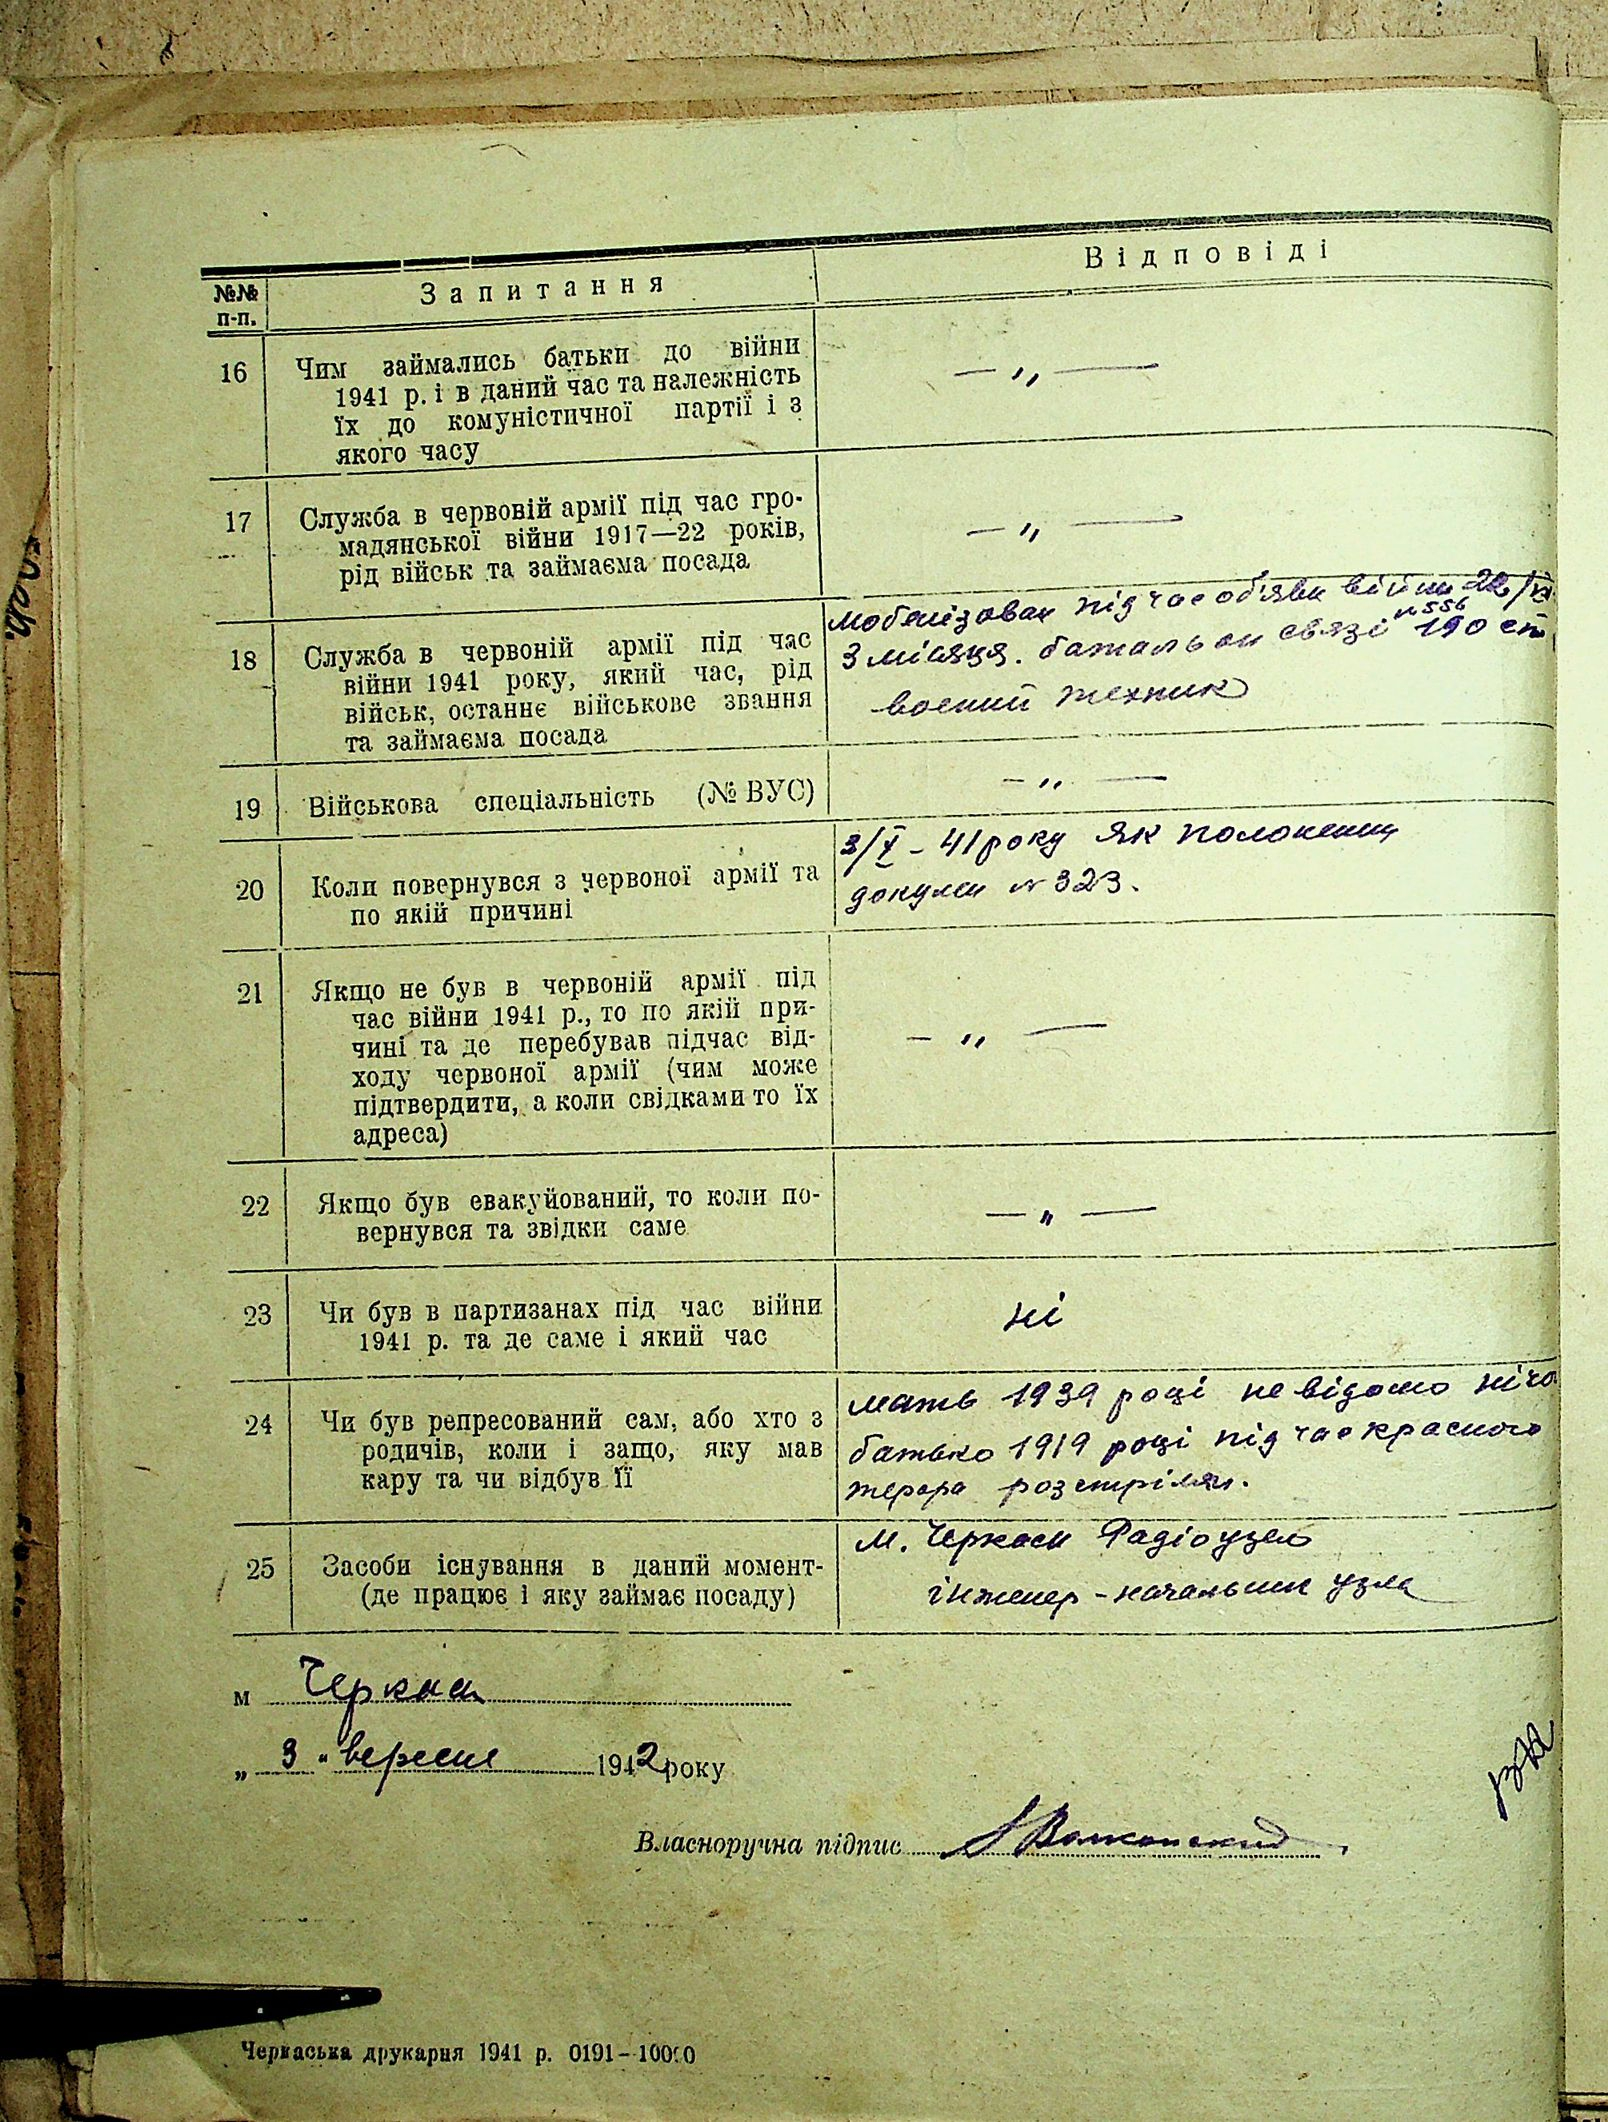 №№ п-п.
Запитання
Відповіді
16
Чим займались батьки до війни
1941 р. і в даний час та належність
їх до комуністичної партії і з
якого часу
— „ —
17
Служба в червовій армії під час гро-
мадянської війни 1917—22 років,
рід військ та займаєма посада
— „ —
18
Служба в червоній армії під час
війни 1941 року, який час, рід
військ, останнє військове звання
та займаєма посада
мобелізован під час об'яви війни 22/VI
№ 556
3 місяця. батальон связі 190
воєний техник
19
Військова спеціальність (№ ВУС)
— „ —
20
Коли повернувся з червоної армії та
по якій причині
3/X - 41 року як полонений
докумен № 323.
21
Якщо не був в червоній армії під
час війни 1941 р., то по якій при-
чині та де перебував підчас від-
ходу червоної армії (чим може
підтвердити, а коли свідками то їх
адреса)
— „ —
22
Якщо був евакуйований, то коли по-
вернувся та звідки саме
— „ —
23
Чи був в партизанах під час війни
1941 р. та де саме і який час
ні
24
Чи був репресований сам, або хто з
родичів, коли і защо, яку мав
кару та чи відбув її
мать 1939 році не відомо нічо
батько 1919 році під час красного
терора розстрілян.
25
Засоби існування в даний момент-
(де працює і яку займає посаду)
м. Черкаси Радіоузел
інженер - начальник узла
м Черкаси
„ 3 " вересня 1942 року
Власноручна підпис Волконский
Черкаська друкарня 1941 р. 0191–10000